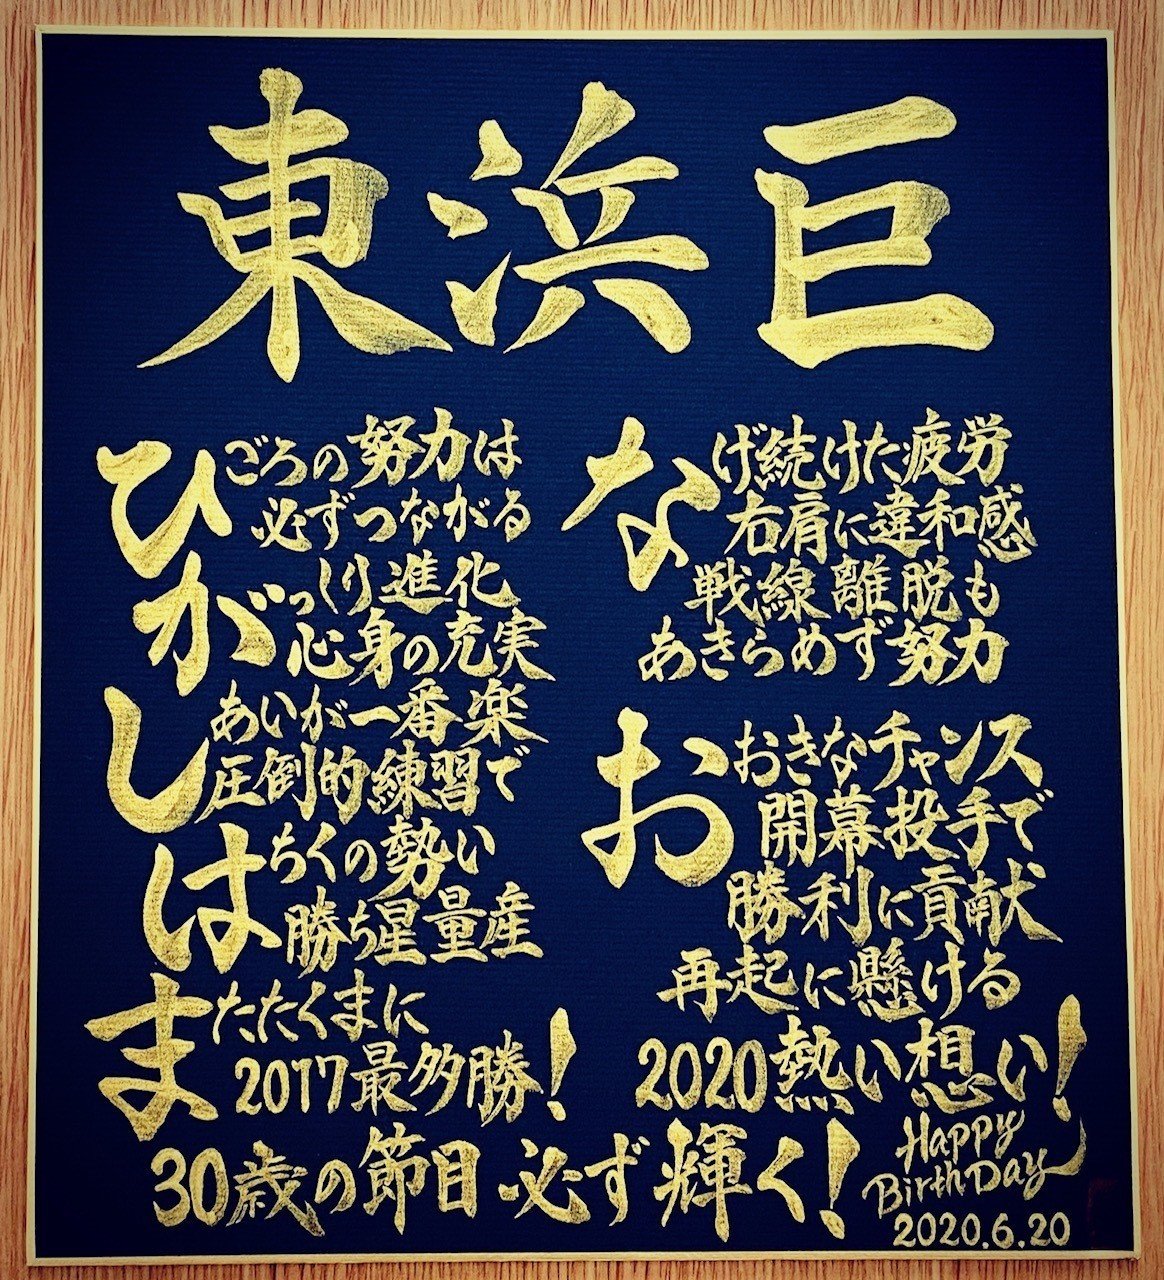 東浜巨
ひごろの努力は
必ずつながる
がっしり進化
心身の充実
しあいが一番楽
圧倒的練習で
はちくの勢い
勝ち星量産
またたくまに
2017最多勝!
なげ続けた疲労
右肩に違和感
戦線離脱も
あきらめず努力
おおきなチャンス
開幕投手で
勝利に貢献
再起に懸ける
2020熱い想い!
30歳の節目必ず輝く!
Happy
BirthDay
2020.6.20